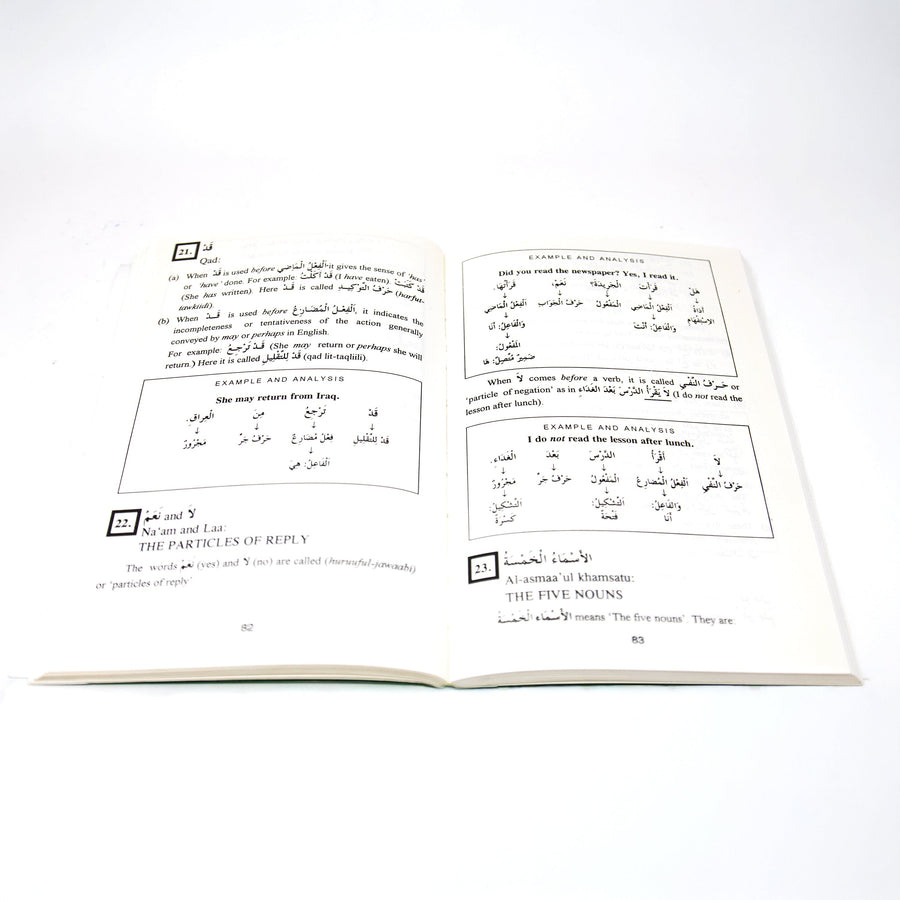 21. قَدْ
Qad:
(a) When قَدْ is used before اَلْفِعْلُ الْمَاضِي it gives the sense of 'has'
or 'have' done. For example: قَدْ أَكَلْتُ (I have eaten). قَدْ كَتَبَتْ
(She has written). Here قَدْ is called حَرْفُ التَّوْكِيدِ (harfut-
tawkiidi).
(b) When قَدْ is used before اَلْفِعْلُ الْمُضَارِعُ, it indicates the
incompleteness or tentativeness of the action generally
conveyed by may or perhaps in English.
For example: قَدْ تَرْجِعُ (She may return or perhaps she will
return.) Here it is called قَدْ لِلتَّقْلِيلِ (qad lit-taqliili).
EXAMPLE AND ANALYSIS
She may return from Iraq.
قَدْ تَرْجِعُ مِنَ الْعِراقِ.
↓ ↓ ↓ ↓
قَدْ لِلتَّقْلِيلِ فِعْلُ مُضَارِعُ حَرْفُ جَرٍّ مَجْرُورٌ
↓
اَلْفَاعِلُ: هِيَ
22. نَعَمْ and لاَ
Na'am and Laa:
THE PARTICLES OF REPLY
The words نَعَمْ (yes) and لاَ (no) are called (huruuful-jawaabi)
or 'particles of reply'
82
EXAMPLE AND ANALYSIS
Did you read the newspaper? Yes, I read it.
هَلْ قَرَأْتَ الْجَرِيْدَةَ؟ نَعَمْ، قَرَأْتُهَا.
↓ ↓ ↓ ↓ ↓
أَدَاةُ اَلْفِعْلُ الْمَاضِي الْمَفْعُولُ حَرْفُ الْجَوَابِ اَلْفِعْلُ الْمَاضِي
الاِسْتِفْهَامِ وَالْفَاعِلُ: أَنْتَ وَالْفَاعِلُ: أَنَا
↓
الْمَفْعُولُ:
ضَمِيرٌ مُتَّصِلٌ: هَا
When لاَ comes before a verb, it is called حَرْفُ النَّفْيِ or
'particle of negation' as in لاَ يَقْرَأُ الدَّرْسَ بَعْدَ الْغَدَاءِ (I do not read the
lesson after lunch).
EXAMPLE AND ANALYSIS
I do not read the lesson after lunch.
لاَ أَقْرَأُ الدَّرْسَ بَعْدَ الْغَدَاءِ.
↓ ↓ ↓ ↓ ↓
حَرْفُ النَّفْيِ اَلْفِعْلُ الْمُضَارِعُ الْمَفْعُولُ حَرْفُ جَرٍّ مَجْرُورٌ
↓ ↓ ↓
وَالْفَاعِلُ: اَلتَّشْكِيلُ: اَلتَّشْكِيلُ:
أَنَا فَتْحَةٌ كَسْرَةٌ
23. الأَسْمَاءُ الْخَمْسَةُ
Al-asmaa'ul khamsatu:
THE FIVE NOUNS
الأَسْمَاءُ الْخَمْسَةُ means 'The five nouns'. They are:
83